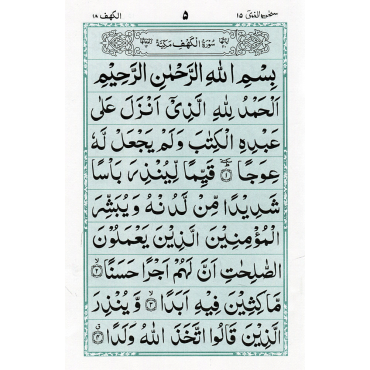 الكهف ١٨ ٥ سبحن الذى ١٥
سُوْرَةُ الْكَهْفِ مَكِّيَّةٌ
بِسْمِ اللهِ الرَّحْمٰنِ الرَّحِيْمِ
اَلْحَمْدُ لِلّٰهِ الَّذِىْٓ اَنْزَلَ عَلٰى
عَبْدِهِ الْكِتٰبَ وَلَمْ يَجْعَلْ لَّهٗ
عِوَجًا ۜ ﴿١﴾ قَيِّمًا لِّيُنْذِرَ بَاْسًا
شَدِيْدًا مِّنْ لَّدُنْهُ وَيُبَشِّرَ
الْمُؤْمِنِيْنَ الَّذِيْنَ يَعْمَلُوْنَ
الصّٰلِحٰتِ اَنَّ لَهُمْ اَجْرًا حَسَنًا ﴿٢﴾
مَّاكِثِيْنَ فِيْهِ اَبَدًا ﴿٣﴾ وَّيُنْذِرَ
الَّذِيْنَ قَالُوا اتَّخَذَ اللهُ وَلَدًا ﴿٤﴾